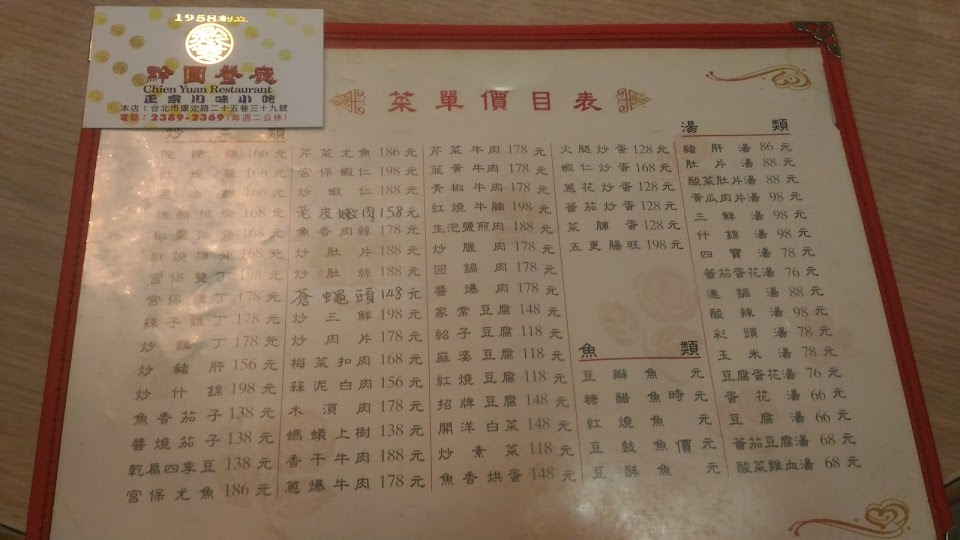 1958創立
黔園餐廳
Chien Yuan Restaurant
正宗川味小吃
本店：台北市康定路二十五巷三十九號
電話：2389-2369(每週二公休)
菜單價目表
炒菜類
166元
166元
166元
168元
168元
168元
宮保雙丁 198元
宮保雞丁 178元
辣子雞丁 178元
炒雞丁 178元
炒豬肝 156元
炒什錦 198元
魚香茄子 138元
醬燒茄子 138元
乾扁四季豆 138元
宮保尤魚 186元
芹菜尤魚 186元
宮保蝦仁 198元
炒蝦仁 188元
老皮嫩肉 158元
魚香肉絲 178元
炒肚片 188元
炒肚絲 188元
蒼蠅頭 148元
炒三鮮 198元
炒肉片 178元
梅菜扣肉 168元
蒜泥白肉 156元
木須肉 178元
螞蟻上樹 138元
香干牛肉 188元
蔥爆牛肉 178元
芹菜牛肉 178元
韮黃牛肉 178元
青椒牛肉 178元
紅燒牛腩 198元
生泡鹽煎肉 188元
炒臘肉 178元
回鍋肉 178元
醬爆肉 178元
家常豆腐 148元
紹子豆腐 118元
麻婆豆腐 118元
紅燒豆腐 118元
招牌豆腐 148元
開洋白菜 148元
炒素菜 118元
魚香烘蛋 148元
火腿炒蛋 128元
蝦仁炒蛋 168元
蔥花炒蛋 128元
蕃茄炒蛋 128元
菜脯蛋 128元
五更腸旺 198元
魚類
豆瓣魚 元
糖醋魚時元
紅燒魚 元
豆鼓魚價元
豆酥魚 元
湯類
豬肝湯 86元
肚片湯 88元
酸菜肚片湯 88元
黃瓜肉片湯 98元
三鮮湯 98元
什錦湯 98元
四寶湯 78元
蕃茄蛋花湯 76元
連鍋湯 88元
酸辣湯 98元
彩頭湯 78元
玉米湯 78元
豆腐蛋花湯 76元
蛋花湯 66元
豆腐湯 66元
蕃茄豆腐湯 68元
酸菜雞血湯 68元